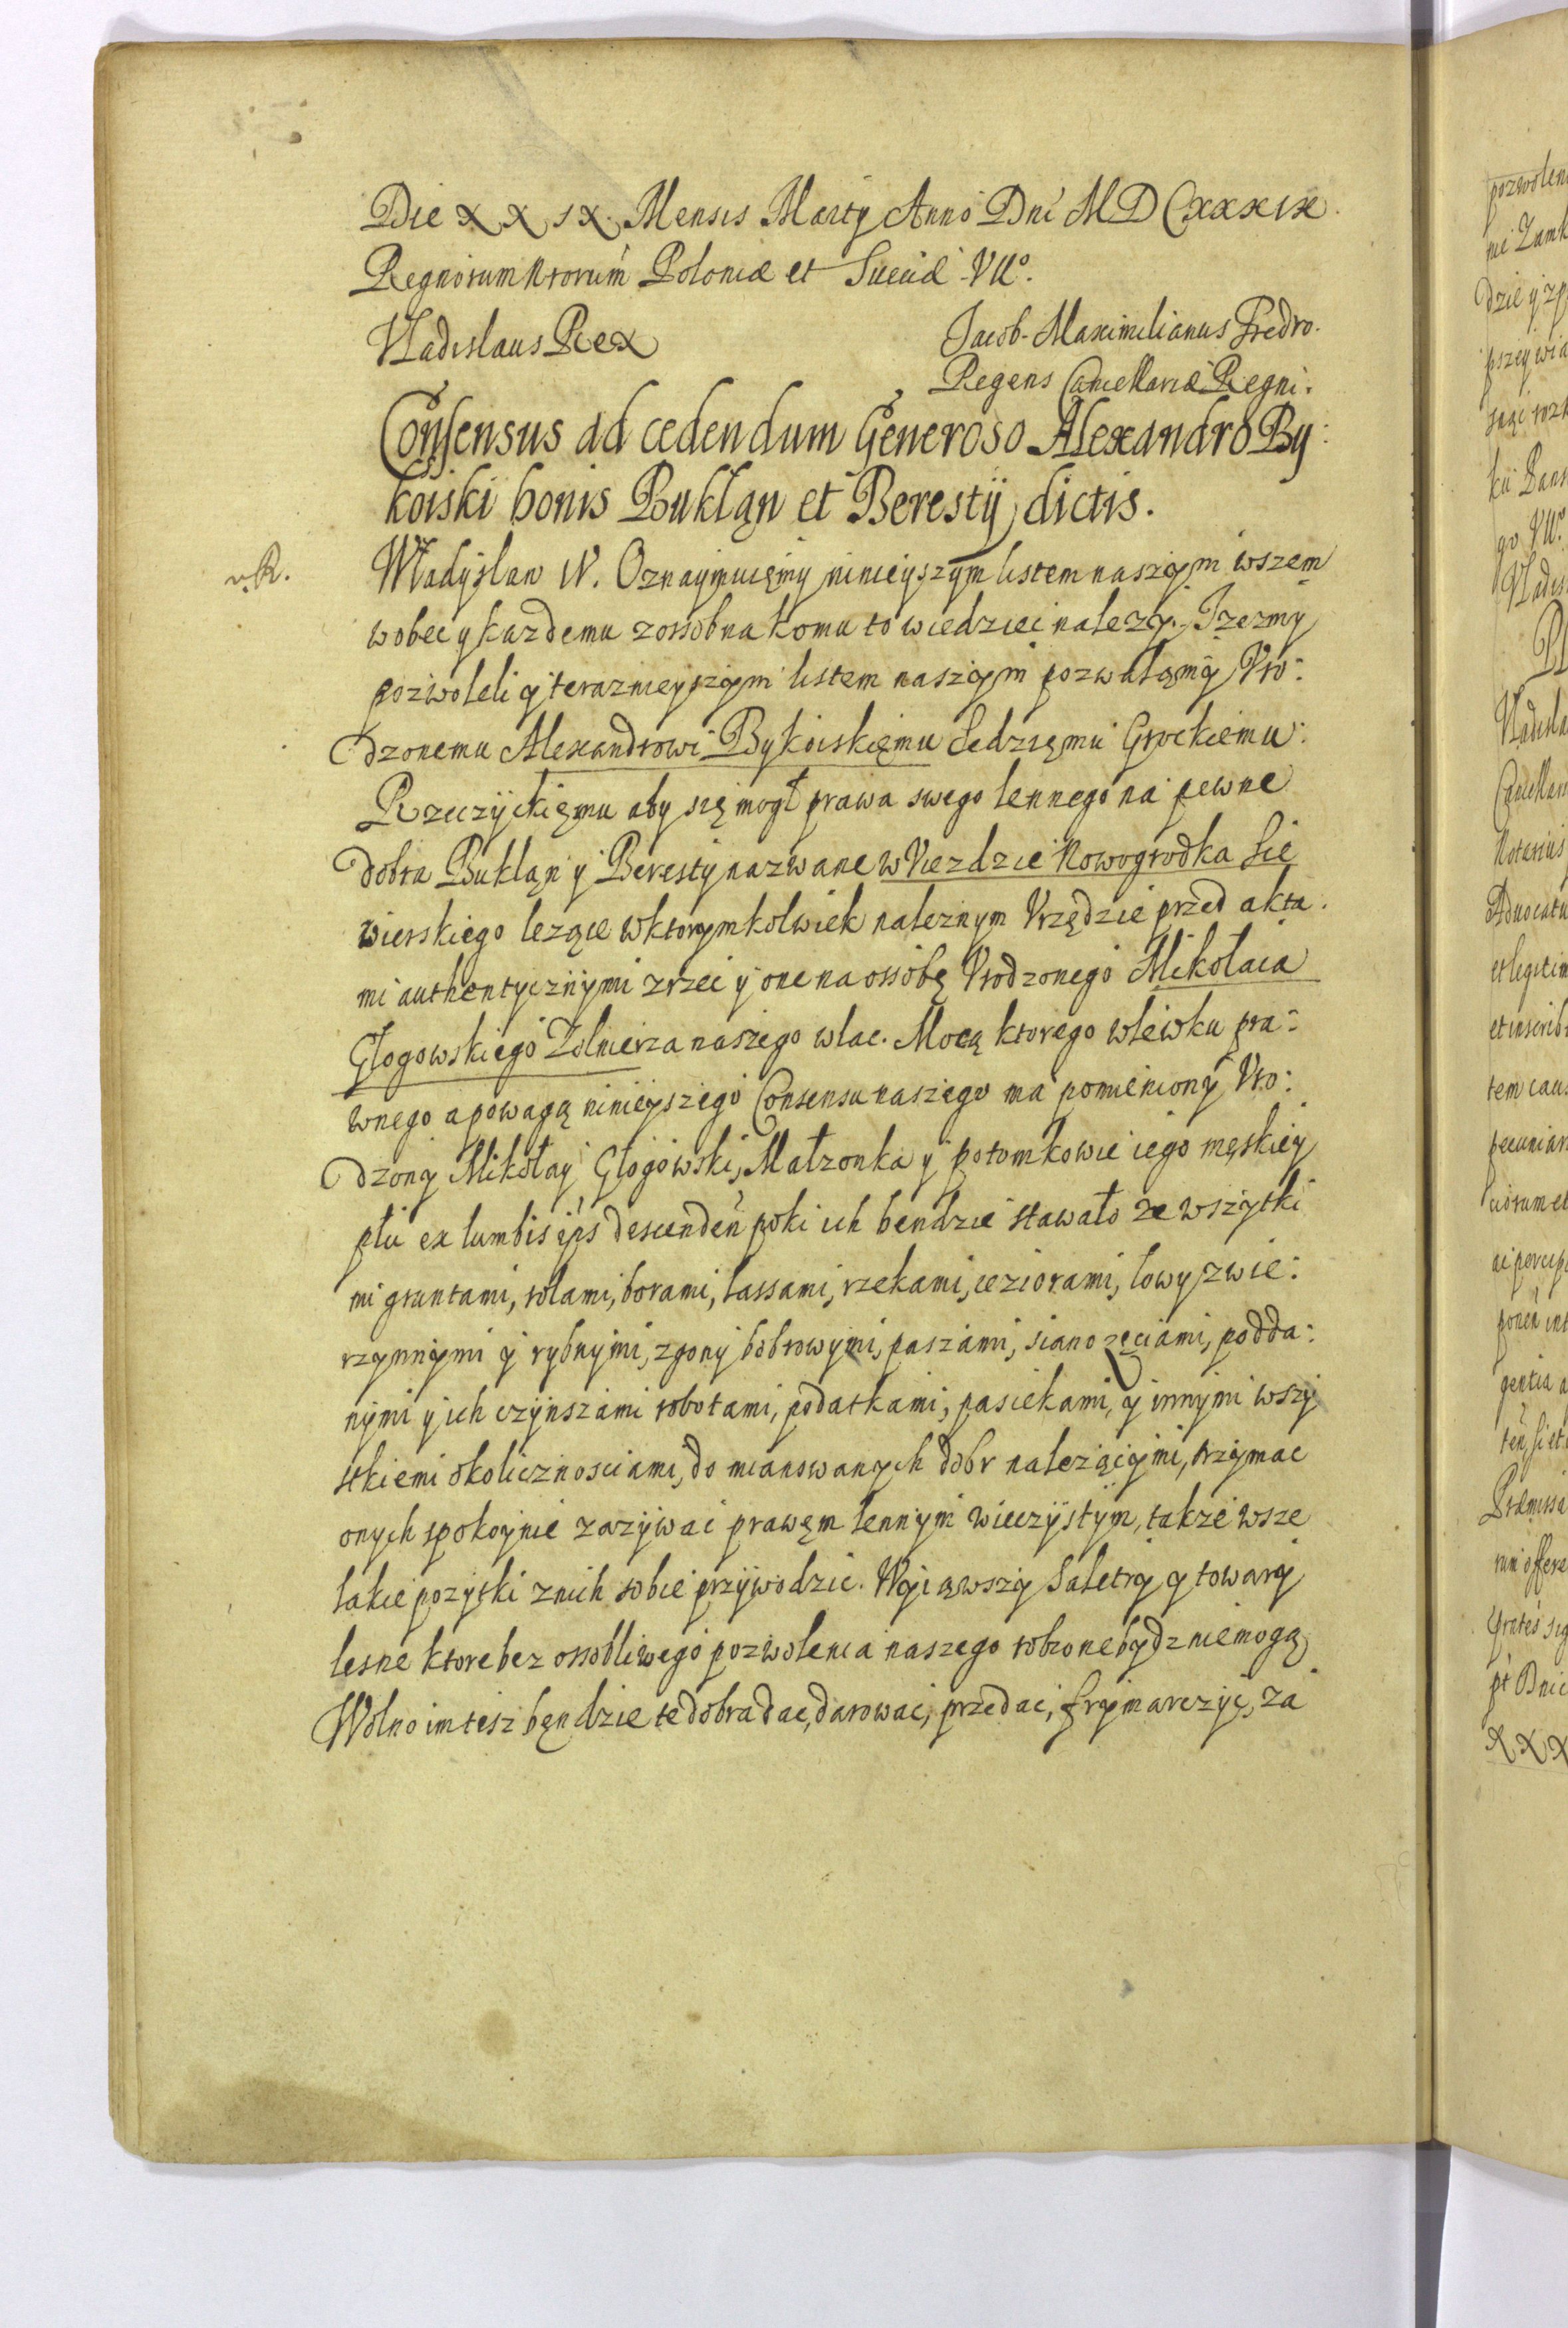 Die XXIX. Mensis Martij Anno Dni MDCXXXIX.
Regnorum Nrorum Poloniæ et Sueciæ VIIº.
Vladislaus Rex
Jacob. Maximilianus Fredro.
Regens Cancellariæ Regni.
Consensus ad cedendum Generoso Alexandro By:
koiski bonis Bukłąn et Berestÿ dictis.
Władysław IV. Oznaymuięmy ninieyszym listem naszym wszem
wobec y kazdemu zossobna komu to wiedziec nalezy. Jzezmy
pozwoleli y teraznieyszym listem naszym pozwaląmy Vro:
dzonemu Alexandrowi Bykoiskięmu Sedzięmu Grockiemu
Rzeczyckięmu aby się mogł prawa swego lennego na pewne
dobra Bukłąn y Beresty nazwane w Viezdzie Nowogrodka Sie
wierskiego lezące w ktorymkolwiek naleznym Vrzędzie przed akta
mi authentycznymi zrzec y one na ossobę Vrodzonego Mikołaia
Głogowskiego Zolnierza naszego wlac. Mocą ktorego wlewku pra:
wnego a powagą ninieyszego Consensu naszego ma pomieniony Vro:
dzony Mikołay Głogowski, Małzonka y potomkowie iego męskiey
płu ex lumbis eius descenden poki ich bendzie stawało ze wszytki
mi gruntami, rolami, borami, lassami, rzekami, ieziorami, łowy zwie:
rzynnymi y rybnymi, zgony bobrowymi, paszami, sianozęciami, podda:
nymi y ich czynszami robotami, podatkami, pasiekami, y innymi wszy
stkiemi okolicznosciami, do mianowanych dobr nalezącymi, trzymac
onych spokoynie zazywac prawęm lennym wieczystym, takze wsze
lakie pozytki znich sobie przywodzic. Wyiąwszy Saletry y towary
lesne ktore bez ossobliwego pozwolenia naszego robione bydz niemogą
Wolno im tesz będzie te dobra dac, darowac, przedac, frymarczyc, za
v. R.